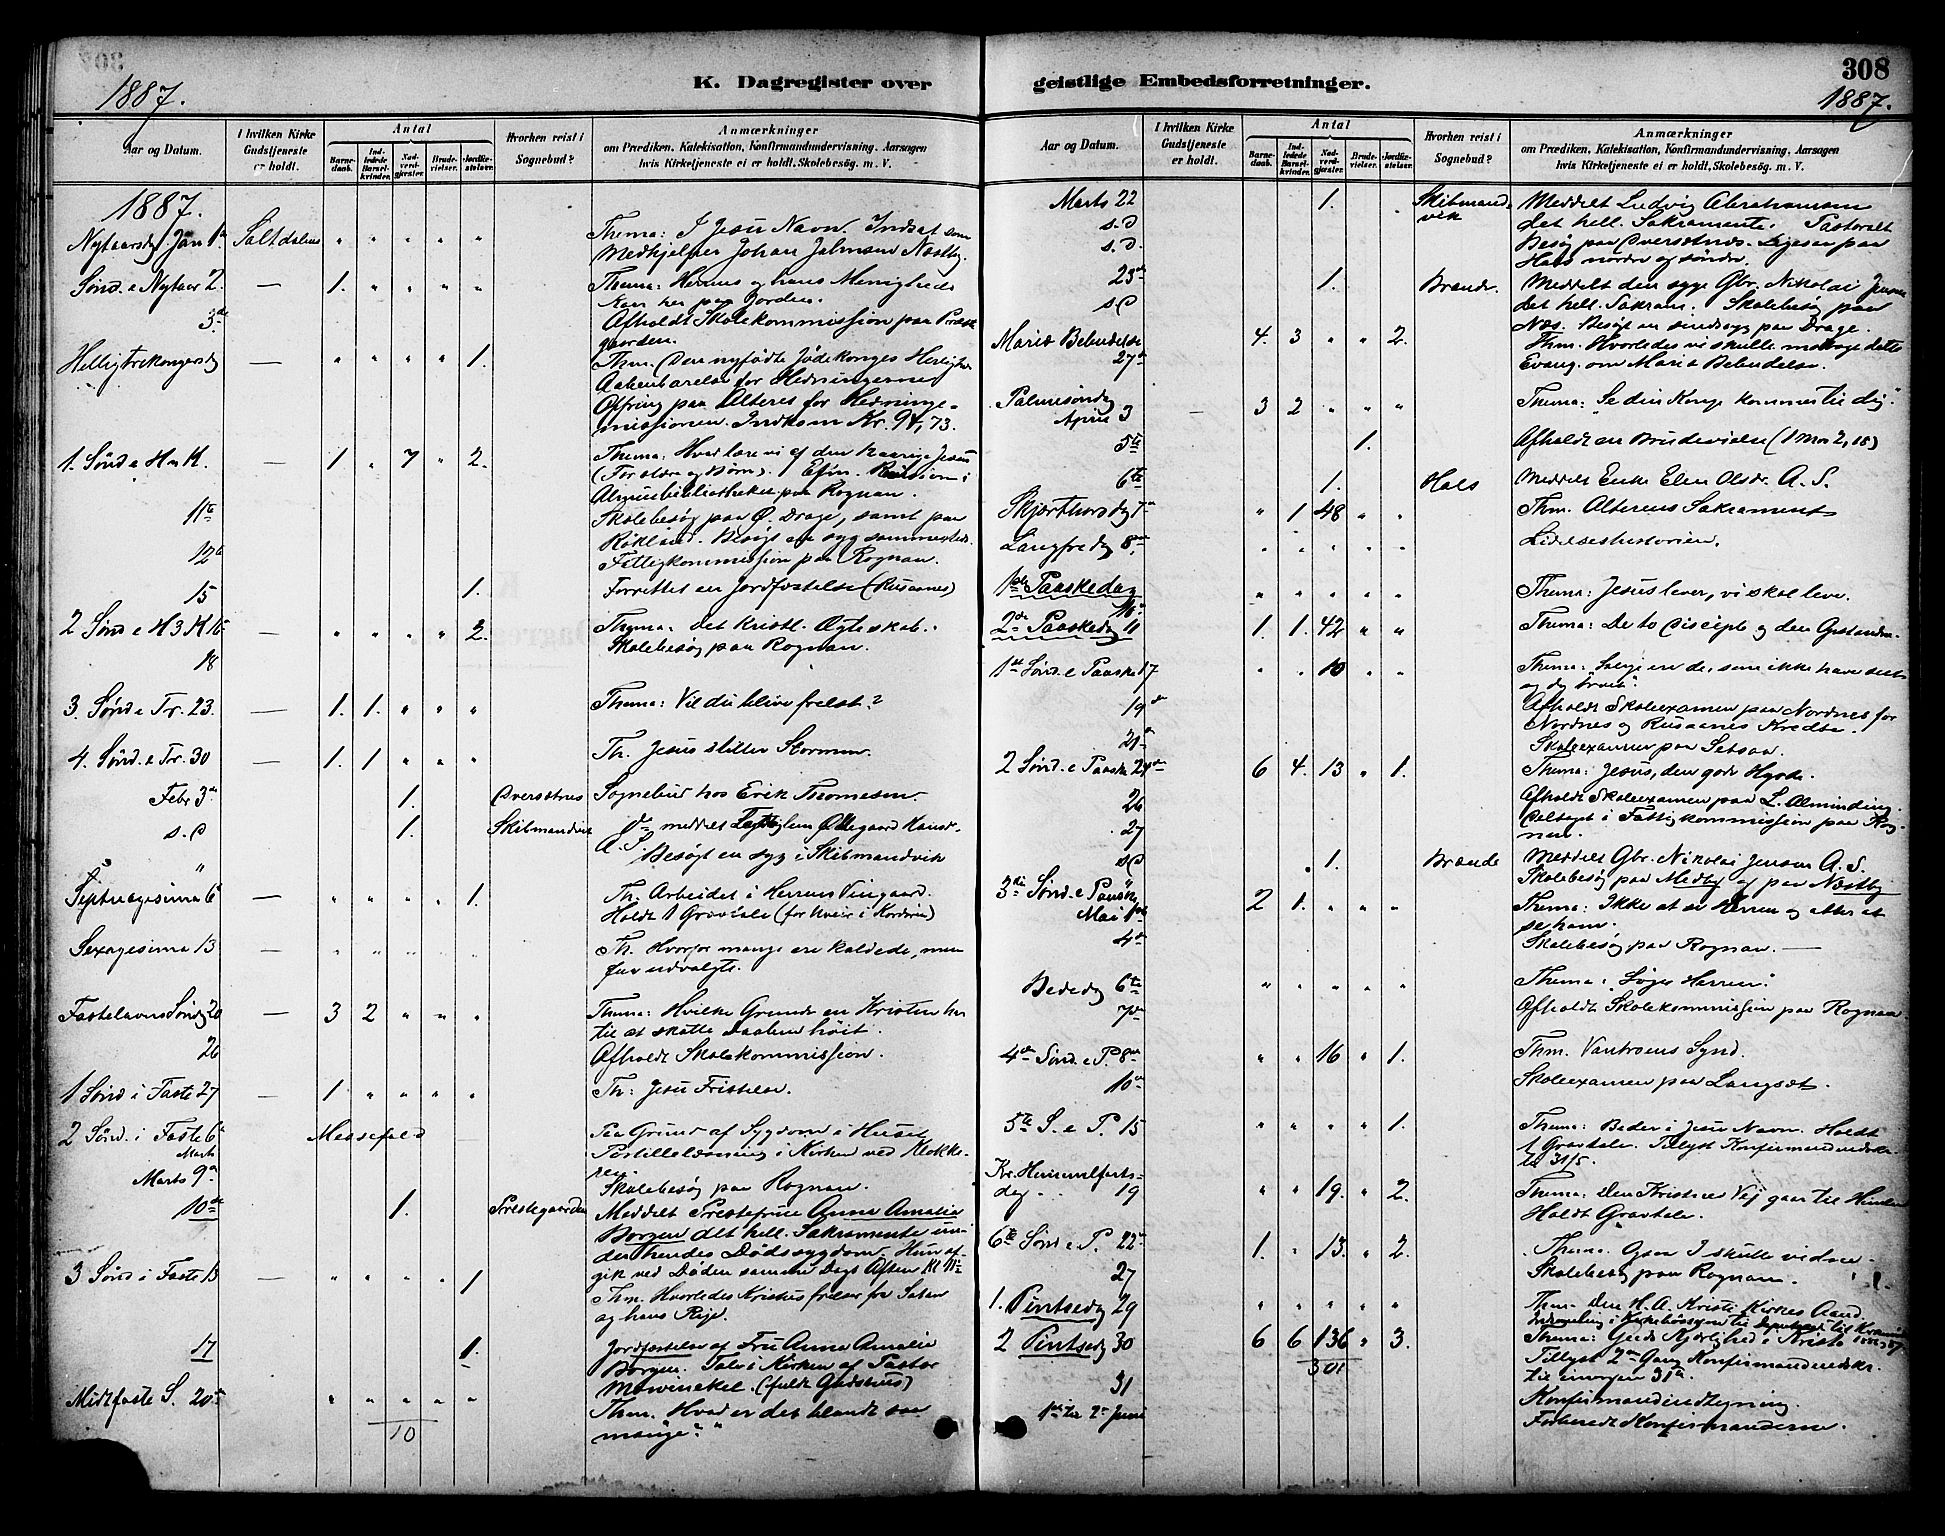 308
1887.
K. Dagregister over
Aar og Datum.
I hvilken Kirke Gudstjeneste er holdt.
Antal
Barnedaab.
Indledede Barselkvinder.
Nadverdgjæster.
Brudevielser.
Jordfæstelser.
Hvorhen reist i Sognebud?
Anmærkninger
om Prædiken, Katekisation, Konfirmandundervisning. Aarsagen
hvis Kirketjeneste ei er holdt. Skolebesøg. m. V.
1887.
Nytaarsdg Jan 1ste Saltdalens " " " " " Thema: I Jesu Navn. Indsat som
Medhjelper Johan Jalmsen Næstby.
Sønd. e Nytaar 2. — 1. " " " " Thema: Herrens og hans Menigheds
Kaar her paa Jorden.
3de Afholdt Skolekommission paa Præste-
gaarden.
Helligtrekongersdg — " " " " 1. Thm. Den nyfødte Jødekonges Herligheds
Aabenbarelse for Hedningerne
Ofring paa Alteret for Hedninge-
missionen. Indkom Kr. 9,73.
1. Sønd e H 3 K. — 1 " 7 " 2. Thema: Hvad lære vi af den 12aarige Jesus
(Forældre og Børn). Efm. Revision i
Almuebibliotheket paa Rognan.
11te Skolebesøg paa Ø. Drage, samt paa
Røkland. Besøgt en syg sammesteds.
12te Fattigkommission paa Rognan.
15 1. Forrettet en Jordfæstelse (Rusaanes)
2 Sønd e H 3 K 16 — " " " " 2. Thema: Det kristl. Ægteskab.
Skolebesøg paa Rognan.
18
3. Sønd e Tr. 23. — 1. 1. " " " Thema: Vil du blive frelst?
4. Sønd. e Tr. 30 — 1. 1 " " " Th. Jesus stiller Stormen.
Febr 3de 1. Evensetnes Sognebud hos Erik Thomesen.
s. d 1. Skibmandvik do meddelt Ødegaard Hansdr.
A. S.
" Besøgt en syg i Skibmandvik
Septuagesima 6te " " " " 1. Th. Arbeidet i Herrens Vingaard.
Holdt 1 Gravtale (for Uveir i Kordøren)
Sexagesima 13 — " " " " " Th. Hvorfor mange ere kaldede, men
faa udvalgte.
Fastelavns Søndg 20 — 3 2 " " " Thema: Hvilke Grunde en Kristen har
til at skatte Daaben høit.
26 Afholdt Skolekommission.
1 Sønd i Faste 27 — 1 " " " " Th: Jesu Fristelse.
2 Sønd. i Faste 6te Marts Messefald — Paa Grund af Sygdom i Huset
Postillelæsning i Kirken ved Klokke-
ren.
Marts 9de Skolebesøg paa Rognan.
10de 1. Prestegaarden Meddelt Præstefrue Anna Amalia
Borgen det hell. Sakramente un-
der hendes Dødssygdom. Hun af-
gik ved Døden samme Dags Aften Kl 11½
3 Sønd i Faste 13 — " " " " 1 Thm. Hvorledes Kristus frelser fra Satan
og hans Rige.
17 1. Jordfæstelse af Fru Anna Amalia
Borgen. Tale i Kirken af Pastor
Mowinckel. (fuldt Gudshus)
Midtfaste S. 20de " " " " " Thm. Hvad er det blandt saa
mange?"
10
308
1887.
geistlige Embedsforretninger.
Aar og Datum.
I hvilken Kirke Gudstjeneste er holdt.
Antal
Barnedaab.
Indledede Barselkvinder.
Nadverdgjæster.
Brudevielser.
Jordfæstelser.
Hvorhen reist i Sognebud?
Anmærkninger
om Prædiken, Katekisation, Konfirmandundervisning, Aarsagen
hvis Kirketjeneste ei er holdt, Skolebesøg. m. V.
Marts 22 1. Skibmandvik Meddelt Ludvig Abrahamsen
s. d det hell. Sakramente. Pastoralt
s. d. Besøg paa Evensetnes. Ligesaa paa
Hals nordre og søndre.
23de 1. Brænde. Meddelt den syge Gbr. Nikolai Jensen
s d det hell. Sakram. Skolebesøg paa
Næs. Besøgt en sindssyg paa Drage.
Mariæ Bebudelse 27de 4. 3 " " 2. Thm. Hvorledes vi skulle modtage dette
Evang. om Mariæ Bebudelse.
Palmesøndag April 3 — 3 2 " " " Thema: "Se din Konge kommer til dig".
5te 1. Afholdt en Brudevielse (1 Mos 2, 18)
6te 1. Hals Meddelt Enke Elen Olsdr. A. S.
Skjærthorsdg 7de " 1 48 " " Thm. Alterens Sakrament
Langfredg 8de " " " " " Lidelseshistorien.
1ste Paaskedag 10 " " " " " Thema: Jesus lever, vi skal leve.
2de Paaskedg 11 1. 1. 42 " " Thema: De to Disciple og den Opstandne.
1ste Sønd. e Paaske 17 " " 10 " " Thema: Salige ere de, som ikke have seet
og dog troet".
19de Afholdt Skoleexamen paa Nordnes for
Nordnes og Rusaanes Kredse.
21de Skoleexamen paa Setsaa.
2 Sønd. e Paaske 24de 6 4. 13 " 1. Thema: Jesus, den gode Hyrde.
26 Afholdt Skoleexamen paa L. Alminding.
27 Deltaget i Fattigkommission paa Rog-
nan.
s d 1. Brænde Meddelt Gbr. Nikolai Jensen A. S.
Skolebesøg paa Medby og paa Næstby
3die Sønd. e Paaske Mai 1ste 2 1. " " " Thema: Ikke at se Herren og atter at
se ham.
4de Skolebesøg paa Rognan. —
Bededg 6te " " " " " Thema: Søger Herren!
7de Afholdt Skolekommission paa Rognan.
4de Sønd. e P. 8de " " 16 " 1. Thm. Vantroens Synd.
10de Skoleexamen paa Langset.
5te S. e P. 15 " " " " 1. Thema: Beder i Jesu Navn. Holdt
1 Gravtale. Tillyst Konfirmandundskr.
til 31/5.
Kr. Himmelfartsdag. . 19 " " 19. " 2. Thema: Den Kristnes Vej gaar til Himlen
Holdt Gravtale.
6te Sønd. e P. 22de 1. " 13. " 2. Thema. Ogsaa I skulle vidne.
27 Skolebesøg paa Rognan.
1. Pintsedg 29 " " " " " Thm. Den H. A. Kristi Kirkes Aand.
2 Pintsedg 30 6 6 136 " 3. Thema: Guds Kjærlighed i Kristo
301 Tillyst 2den Gang Konfirmandundskr.
til imorgen 31te.
31 Konfirmandindtegning.
1ste til 2de Juni Forberedt Konfirmanderne.